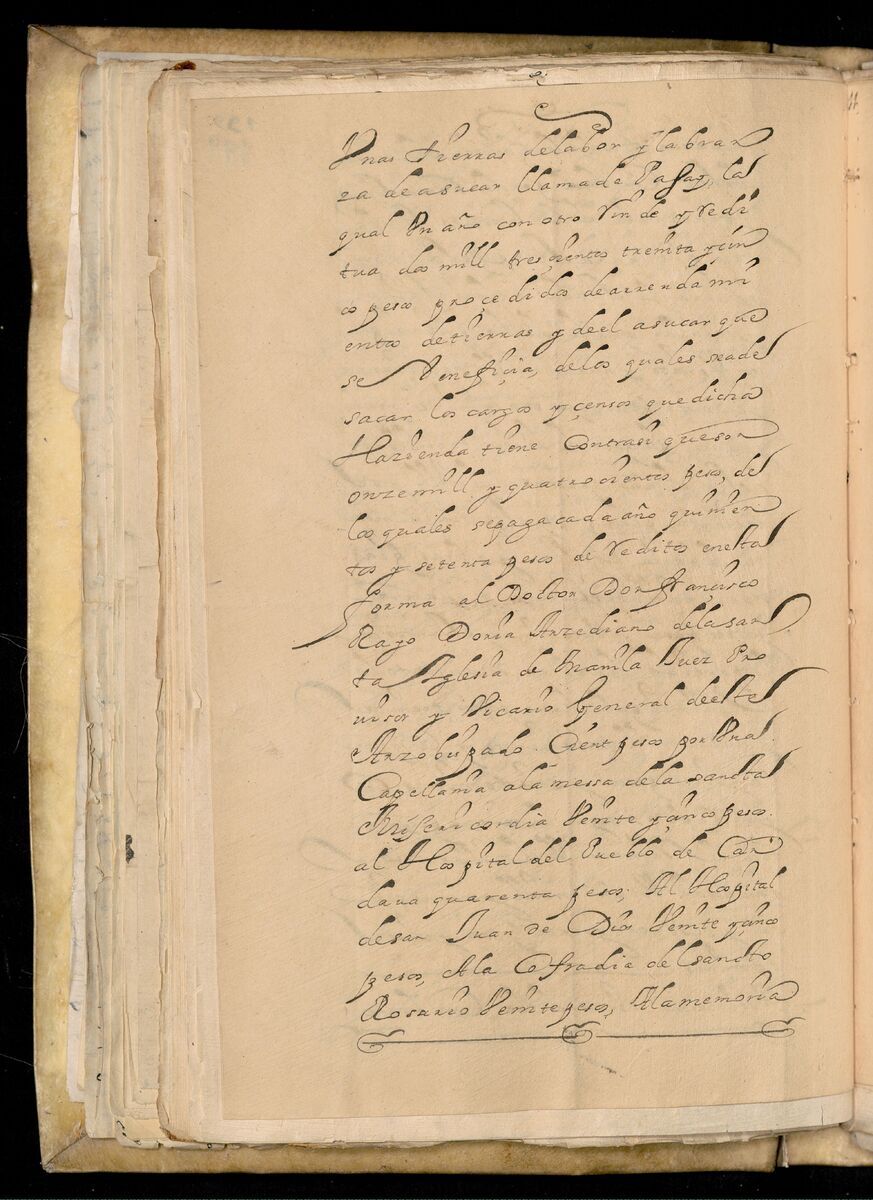 Vnas tierras delabor y labran
za de asucar llamade Pasay, la
qual Vn año con otro Rinde y Redi
tua dos mill tresçientos treinta y çin
co pesos proçedidos dearrendami
entos detierras y deel asucar que
se Venefiçia, delos quales seade
sacar los cargos y çensos que dicha
Hazienda tiene Contrasi queson
onzemill y quatrocientos pesos, de
los quales sepaga cada año quinien
tos y setenta pesos de Reditos enesta
forma al Doctor Don françisco
Rayo Doria Arzediano dela san
ta Iglesia de Manila Juez Pro
uisor y Vicario General deeste
Arzobispado. Cient pesos por Vna
Capellania ala messa dela sancta
Misericordia Veinte y çinco pesos.
al Hospital del Pueblo de Can
daua quarenta pesos; Al Hospital
de san Juan de Dios Veinte y çinco
pesos, Ala Cofradia del sancto
Rosario Veinte pesos, Ala memoria